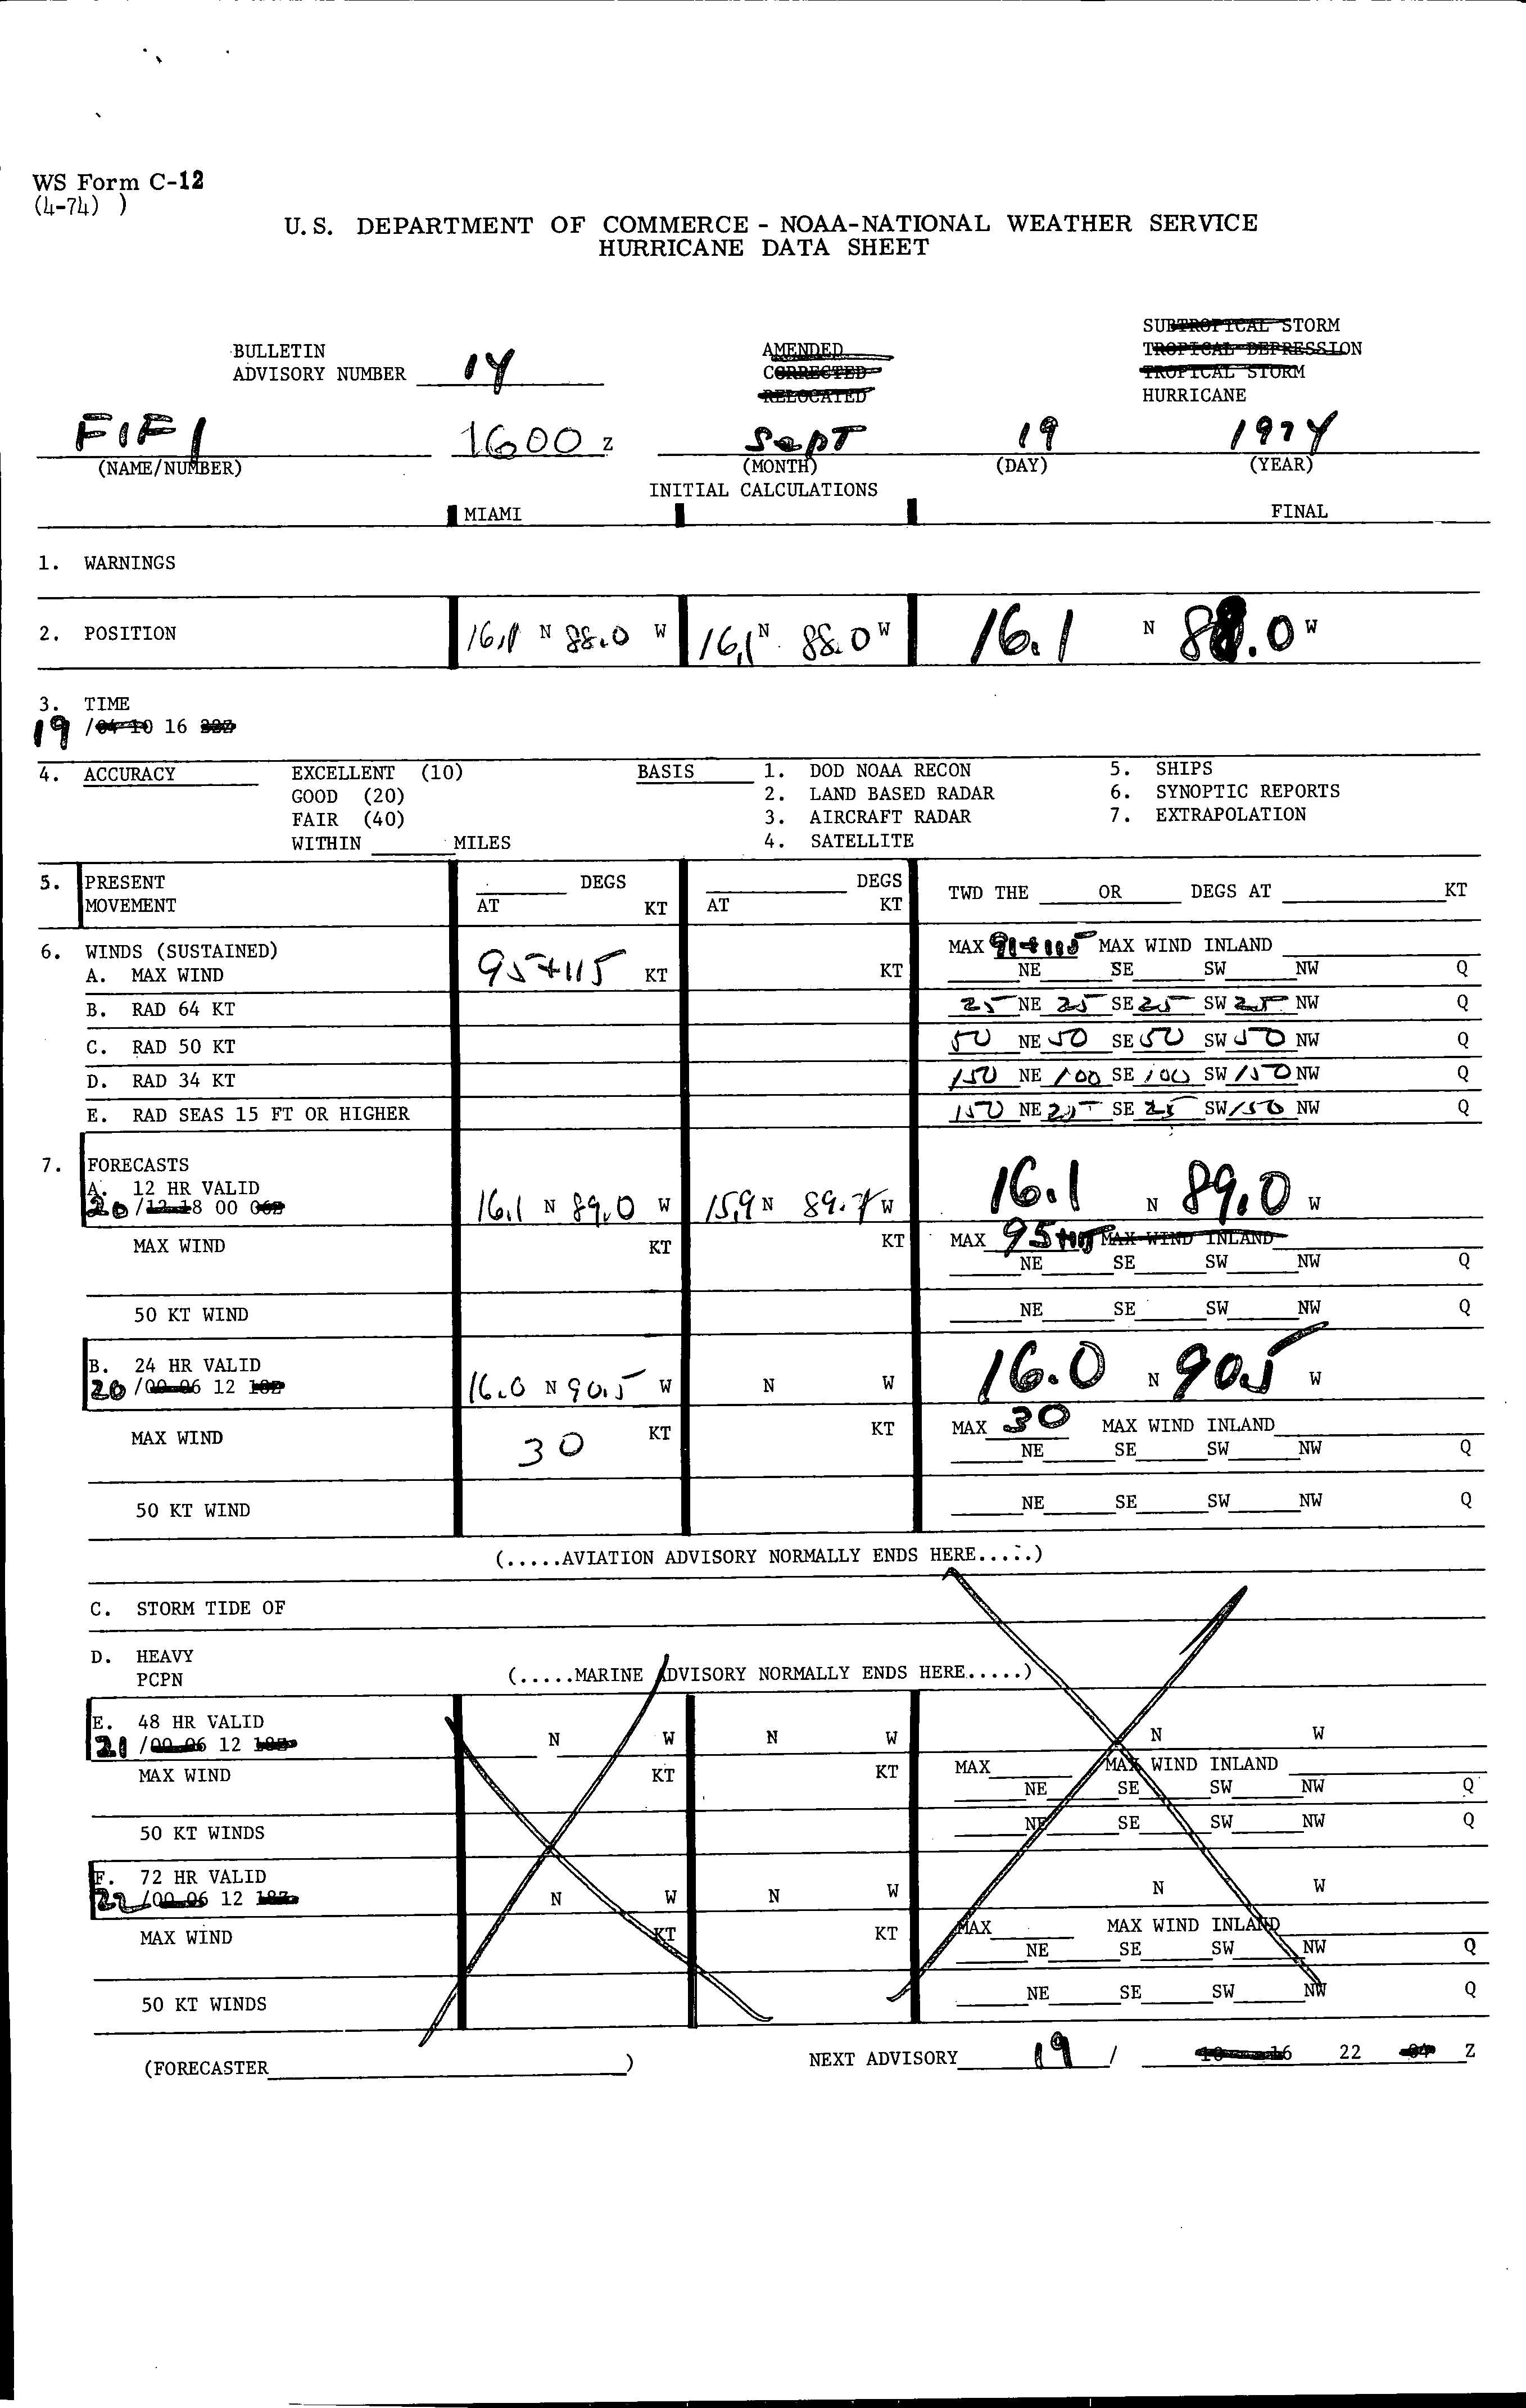 WS Form C-12
(4-74) )
U.S. DEPARTMENT OF COMMERCE - NOAA-NATIONAL WEATHER SERVICE
HURRICANE DATA SHEET
SUBTROPICAL STORM
BULLETIN AMENDED TROPICAL DEPRESSION
ADVISORY NUMBER 14 CORRECTED TROPICAL STORM
RELOCATED HURRICANE
FIFI 1600 Z Sept 19 1974
(NAME/NUMBER) (MONTH) (DAY) (YEAR)
INITIAL CALCULATIONS
MIAMI FINAL
1. WARNINGS
2. POSITION 16.1 N 88.0 W 16.1 N 88.0 W 16.1 N 88.0 W
3. TIME
19 /04 10 16 22Z
4. ACCURACY EXCELLENT (10) BASIS 1. DOD NOAA RECON 5. SHIPS
GOOD (20) 2. LAND BASED RADAR 6. SYNOPTIC REPORTS
FAIR (40) 3. AIRCRAFT RADAR 7. EXTRAPOLATION
WITHIN MILES 4. SATELLITE
5. PRESENT DEGS DEGS TWD THE OR DEGS AT KT
MOVEMENT AT KT AT KT
6. WINDS (SUSTAINED) MAX MAX WIND INLAND
A. MAX WIND 95+115 KT KT NE SE SW NW Q
B. RAD 64 KT 25 NE 25 SE 25 SW 25 NW Q
C. RAD 50 KT 50 NE 50 SE 50 SW 50 NW Q
D. RAD 34 KT 150 NE 100 SE 100 SW 150 NW Q
E. RAD SEAS 15 FT OR HIGHER 150 NE 25 SE 25 SW 150 NW Q
7. FORECASTS
A. 12 HR VALID
20 /12 18 00 06Z 16.1 N 89.0 W 15.9 N 89.7 W 16.1 N 89.0 W
MAX WIND KT KT MAX 95 MAX WIND INLAND
NE SE SW NW Q
50 KT WIND NE SE SW NW Q
B. 24 HR VALID
20 /00 06 12 18Z 16.0 N 90.5 W N W 16.0 N 90.5 W
MAX WIND 30 KT KT MAX 30 MAX WIND INLAND
NE SE SW NW Q
50 KT WIND NE SE SW NW Q
(.....AVIATION ADVISORY NORMALLY ENDS HERE.....)
C. STORM TIDE OF
D. HEAVY
PCPN (.....MARINE ADVISORY NORMALLY ENDS HERE.....)
E. 48 HR VALID
21 /00 06 12 18Z N W N W N W
MAX WIND KT KT MAX MAX WIND INLAND
NE SE SW NW Q
50 KT WINDS NE SE SW NW Q
F. 72 HR VALID
22 /00 06 12 18Z N W N W N W
MAX WIND KT KT MAX MAX WIND INLAND
NE SE SW NW Q
50 KT WINDS NE SE SW NW Q
(FORECASTER ) NEXT ADVISORY 19 / 10 16 22 04 Z